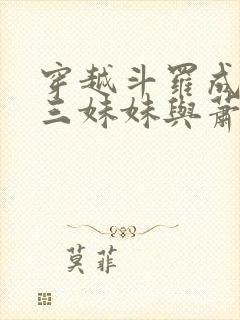 穿越斗羅成
三妹妹與蕭
莫菲